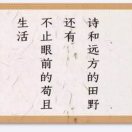 诗和远方的田野
还有
不止眼前的苟且
生活